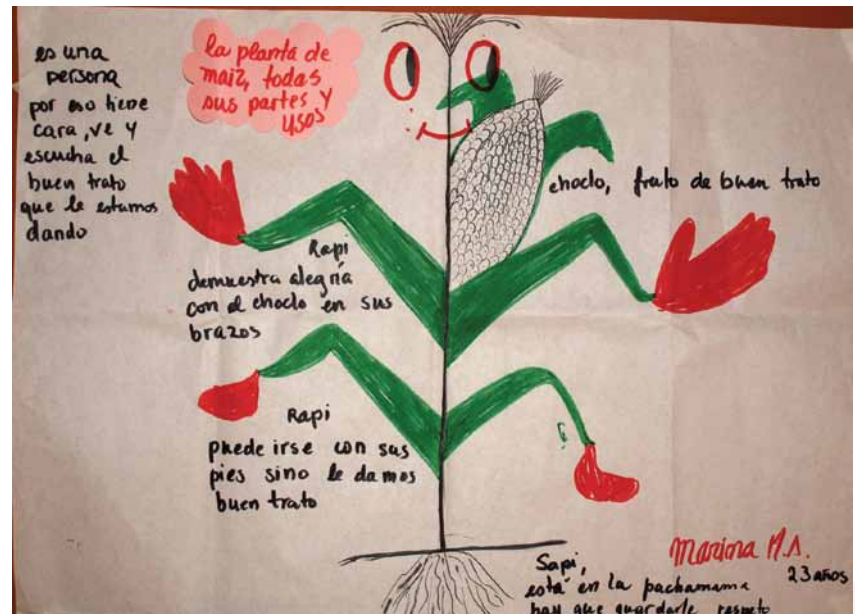 es una
persona
por eso tiene
cara, ve y
escucha el
buen trato
que le estamos
dando
la planta de
maiz, todas
sus partes y
usos
choclo, fruto de buen trato
Rapi
demuestra alegria
con el choclo en sus
brazos
Rapi
puede irse con sus
pies sino le damos
buen trato
Sapi,
está en la pachamama
hay que guardarle respeto
Marina M.A.
23 años